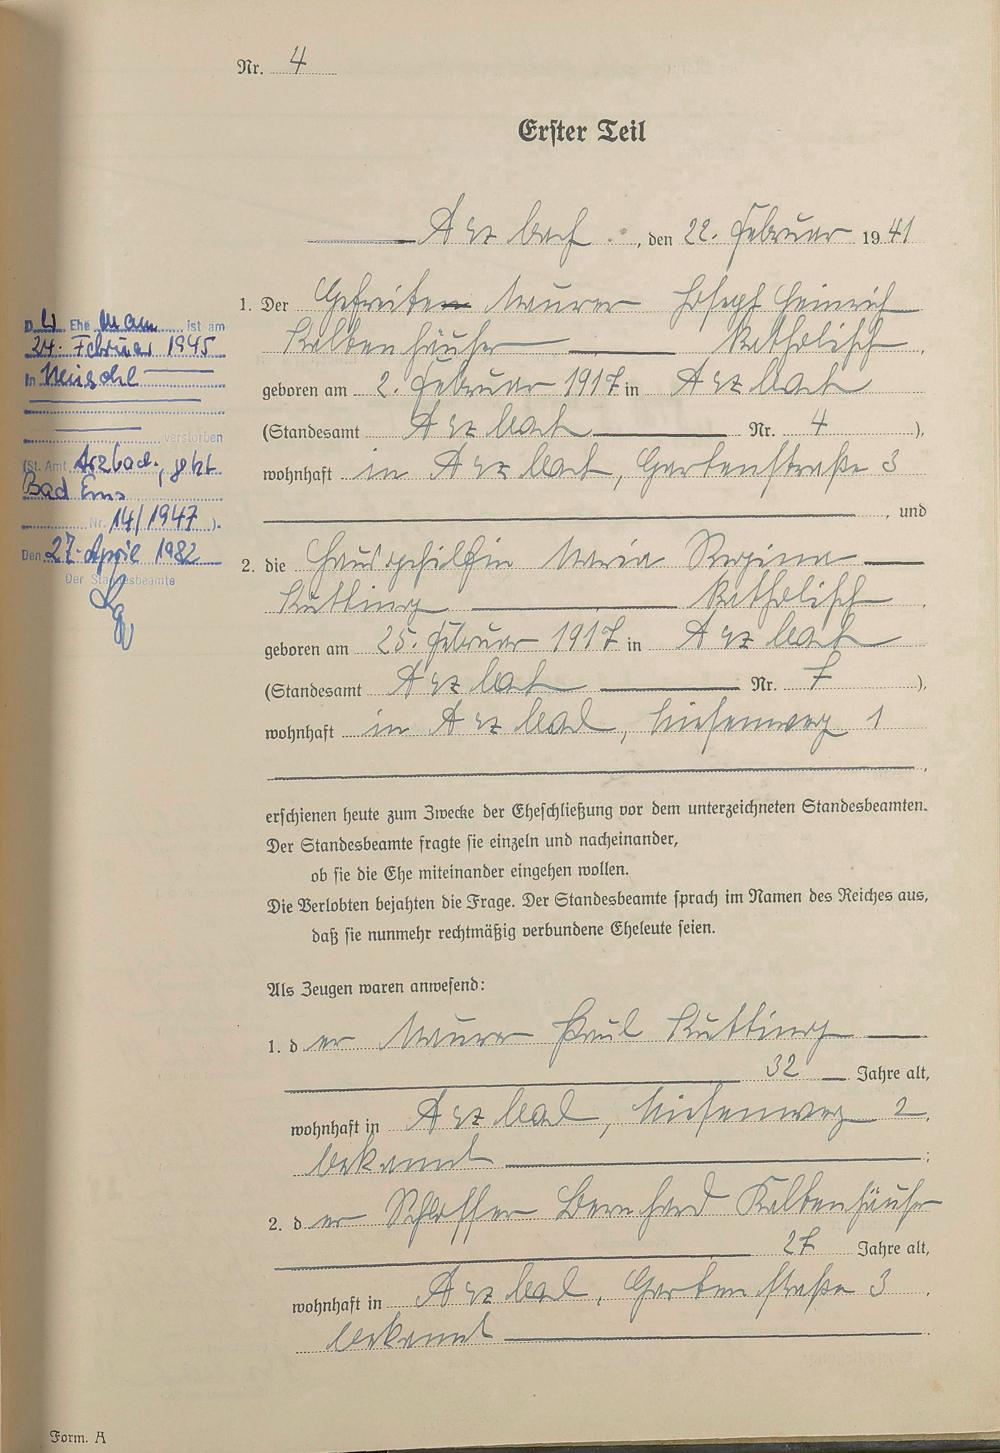 Nr. 4
Erster Teil
Arzbach, den 22. Februar 1941
1. Der Gefreite Maurer Joseph Heinrich
Kaltenhäuser katholisch,
geboren am 2. Februar 1917 in Arzbach
(Standesamt Arzbach Nr. 4),
wohnhaft in Arzbach, Gartenstraße 3
, und
2. die Hausgehilfin Maria Regina
Kutting katholisch,
geboren am 25. Februar 1917 in Arzbach
(Standesamt Arzbach Nr. 7),
wohnhaft in Arzbach, Wiesenweg 1
,
erschienen heute zum Zwecke der Eheschließung vor dem unterzeichneten Standesbeamten.
Der Standesbeamte fragte sie einzeln und nacheinander,
ob sie die Ehe miteinander eingehen wollen.
Die Verlobten bejahten die Frage. Der Standesbeamte sprach im Namen des Reiches aus,
daß sie nunmehr rechtmäßig verbundene Eheleute seien.
Als Zeugen waren anwesend:
1. der Maurer Paul Kutting
32 Jahre alt,
wohnhaft in Arzbach, Wiesenweg 2,
bekannt;
2. der Schlosser Bernhard Kaltenhäuser
27 Jahre alt,
wohnhaft in Arzbach, Gartenstraße 3,
bekannt.
D. Ehemann ist am
24. Februar 1945
in
verstorben
(St. Amt Arzbach, jetzt
Bad Ems
Nr. 14/1947).
Den 27. April 1982
Der Standesbeamte
Form. A